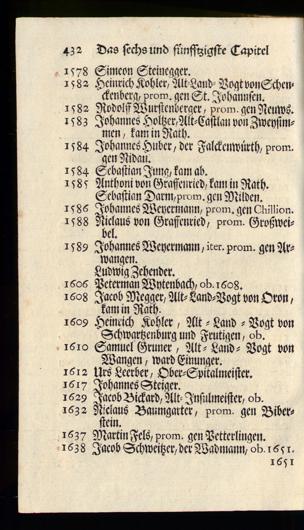 432 Das sechs und fünffzigste Capitel
1578 Simeon Steinegger.
1582 Heinrich Kohler, Alt-Land-Vogt von Schen-
ckenberg, prom. gen St. Johannsen.
1582 Rodolff Wurstenberger, prom. gen Neuws.
1583 Johannes Holtzer, Alt-Castlan von Zweysim-
men, kam in Rath.
1584 Johannes Huber, der Falckenwürth, prom.
gen Nidau.
1584 Sebastian Jung, kam ab.
1585 Anthoni von Graffenried, kam in Rath.
Sebastian Darm, prom. gen Milden.
1586 Johannes Weyermann, prom. gen Chillion.
1588 Niclaus von Graffenried, prom. Großwei-
bel.
1589 Johannes Weyermann, iter. prom. gen Ar-
wangen.
Ludwig Zehender.
1606 Peterman Wytenbach, ob. 1608.
1608 Jacob Megger, Alt-Land-Vogt von Oron,
kam in Rath.
1609 Heinrich Kohler, Alt-Land-Vogt von
Schwartzenburg und Frutigen, ob.
1610 Samuel Gruner, Alt-Land-Vogt von
Wangen, ward Einunger.
1612 Urs Leerber, Ober-Spitalmeister.
1617 Johannes Steiger.
1629 Jacob Bickard, Alt-Insulmeister, ob.
1632 Niclaus Baumgarter, prom. gen Biber-
stein.
1637 Martin Fels, prom. gen Petterlingen.
1638 Jacob Schweitzer, der Wadmann, ob. 1651.
1651